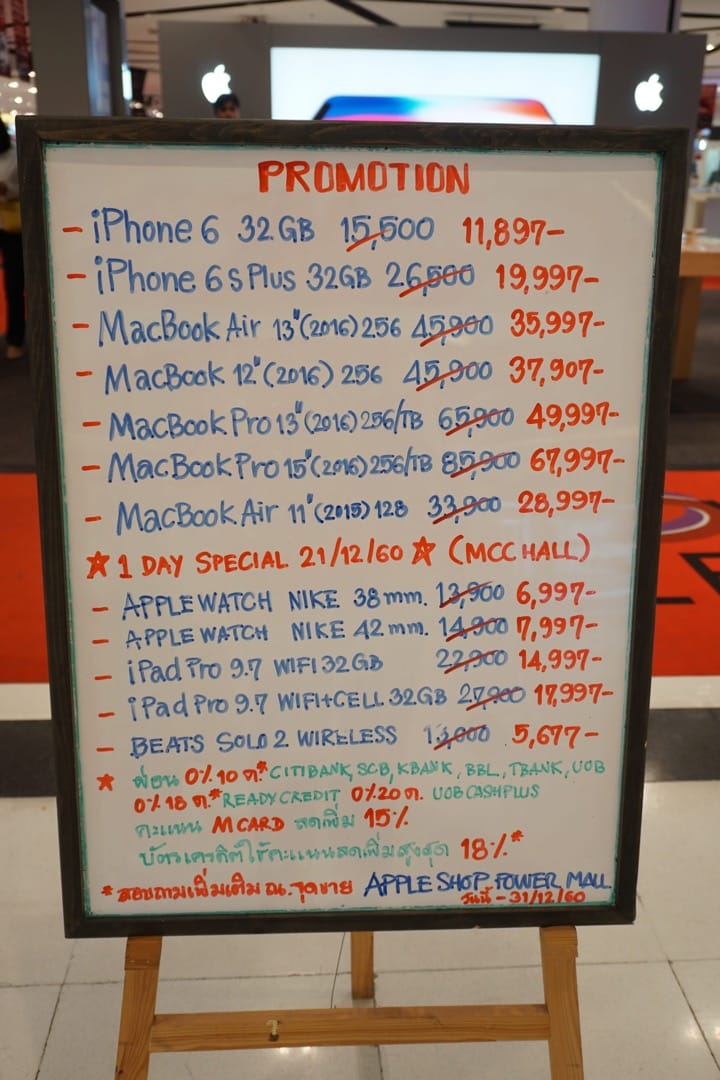 PROMOTION
- iPhone 6 32GB 15,500 11,897-
- iPhone 6s Plus 32GB 26,500 19,997-
- MacBook Air 13"(2016) 256 45,900 35,997-
- MacBook 12"(2016) 256 45,900 37,907-
- MacBook Pro 13"(2016) 256/TB 65,900 49,997-
- MacBook Pro 15"(2016) 256/TB 85,900 67,997-
- MacBook Air 11"(2015) 128 33,900 28,997-
☆ 1 DAY SPECIAL 21/12/60 ☆ (MCC HALL)
- APPLE WATCH NIKE 38mm. 13,900 6,997-
- APPLE WATCH NIKE 42mm. 14,900 7,997-
- iPad Pro 9.7 WIFI 32GB 22,900 14,997-
- iPad Pro 9.7 WIFI+CELL 32GB 27,900 17,997-
- BEATS SOLO 2 WIRELESS 13,000 5,677-
* ผ่อน 0% 10 ด.* CITIBANK, SCB, KBANK, BBL, TBANK, UOB
0% 18 ด.* READY CREDIT 0% 20 ด. UOB CASHPLUS
คะแนน M CARD ลดเพิ่ม 15%
บัตรเครดิตใช้คะแนนลดเพิ่มสูงสุด 18%*
*สอบถามเพิ่มเติม ณ.จุดขาย APPLE SHOP POWER MALL
วันนี้ - 31/12/60